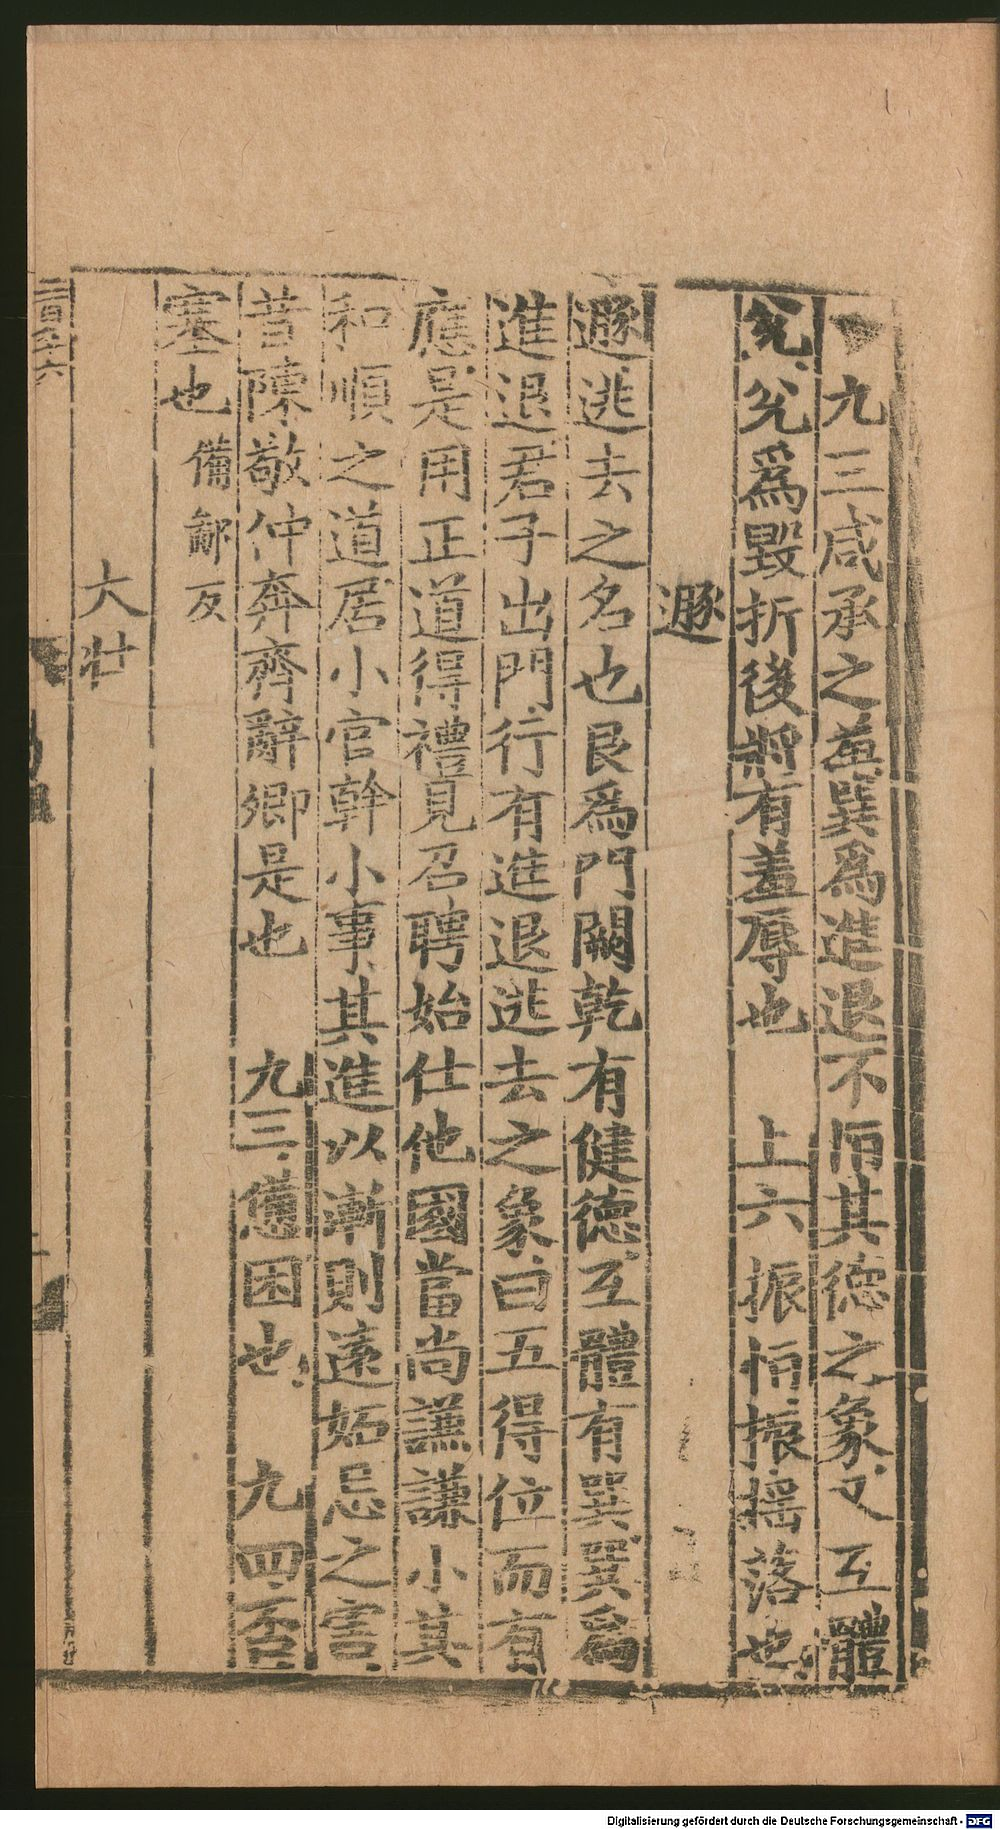 九三咸承之羞巽爲進退不恒其德之象又互體
兊兊爲毀折後將有羞辱也　上六振恒振搖落也
遯
遯逃去之名也艮爲門闕乾有健德互體有巽巽爲
進退君子出門行有進退逃去之象曰五得位而有
應是用正道得禮見召聘始仕他國當尚謙謙小其
和順之道居小官幹小事其進以漸則遠妬忌之害
昔陳敬仲奔齊辭卿是也　九三憊困也　九四否
塞也 備鄙反
大壯
二百五十六
Digitalisierung gefördert durch die Deutsche Forschungsgemeinschaft - DFG